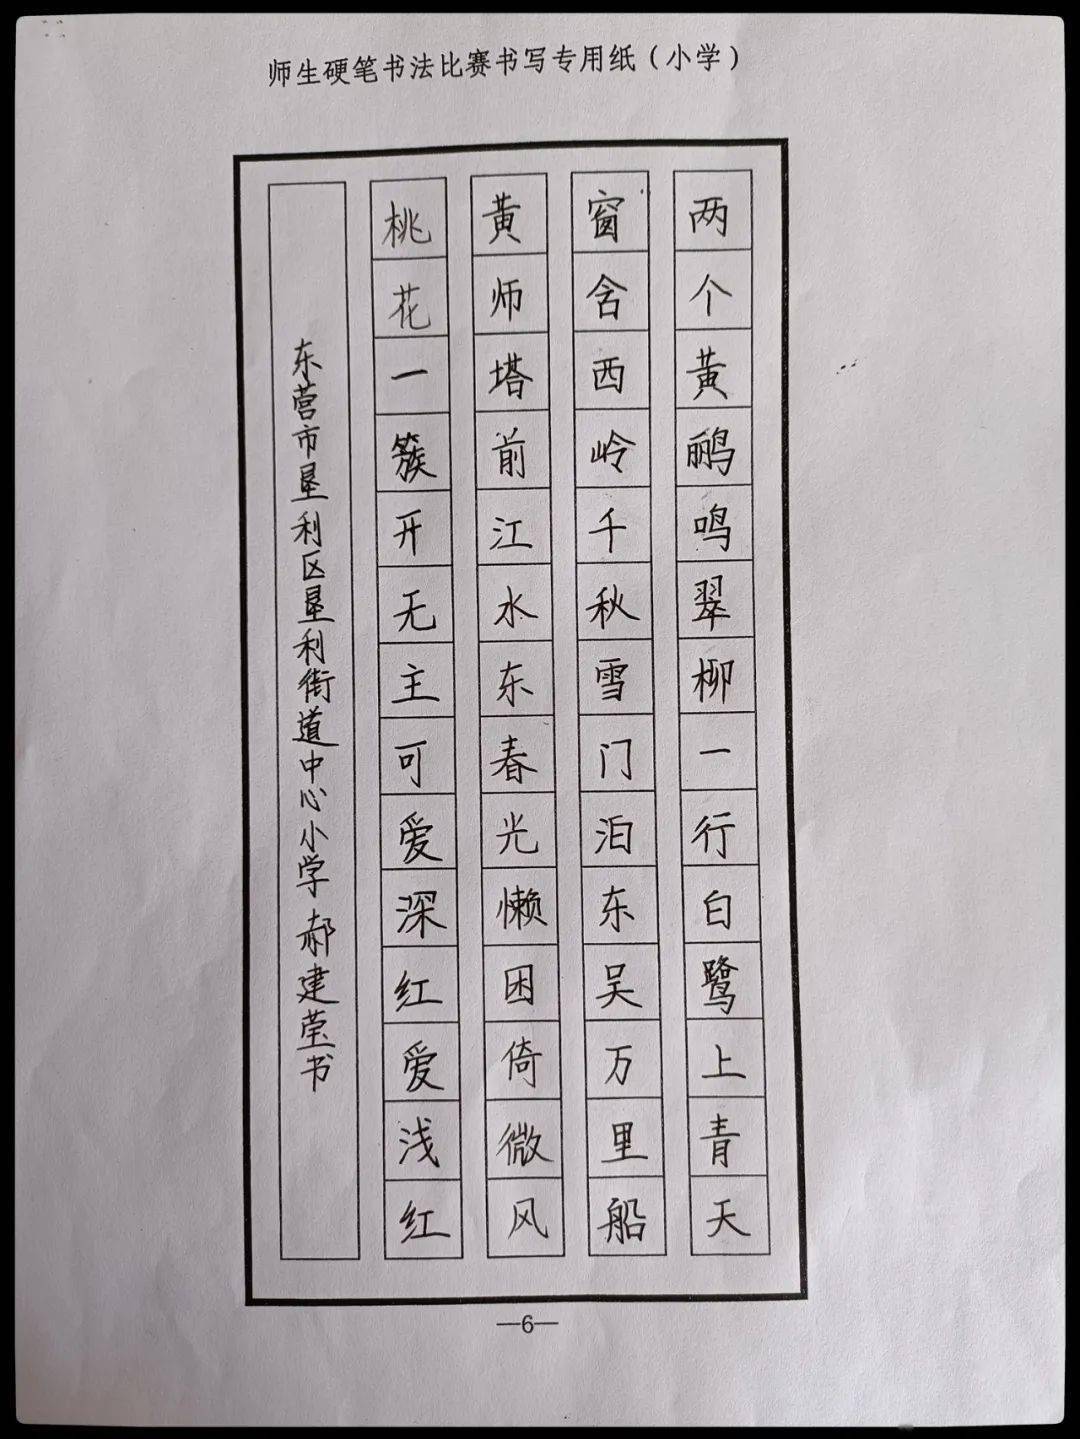 师生硬笔书法比赛书写专用纸（小学）
两个黄鹂鸣翠柳一行白鹭上青天
窗含西岭千秋雪门泊东吴万里船
黄师塔前江水东春光懒困倚微风
桃花一簇开无主可爱深红爱浅红
东营市垦利区垦利街道中心小学郝建莹书
—6—